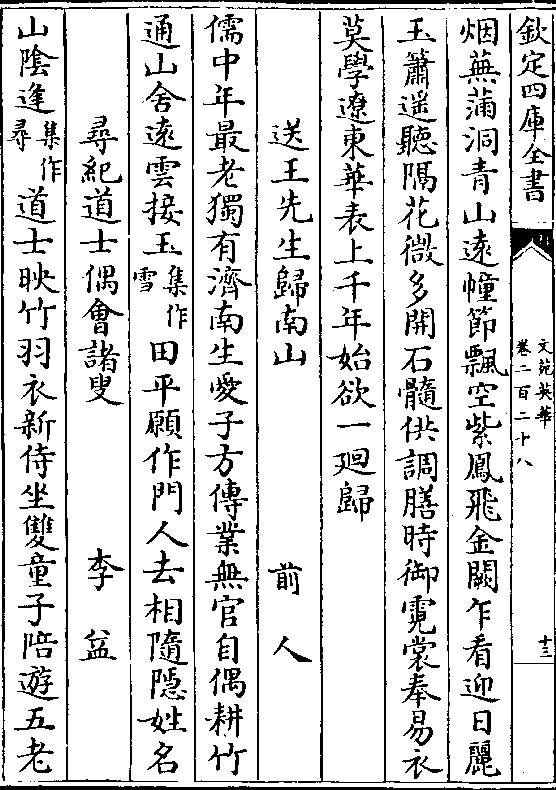 欽定四庫全書
文苑英華
卷二百二十八
十三
烟蕪蒲洞青山遠幢節飄空紫鳳飛金闕乍看迎日麗
玉簫遥聽隔花微多開石髓供調膳時御霓裳奉易衣
莫學遼東華表上千年始欲一廻歸
送王先生歸南山 前人
儒中年最老獨有濟南生愛子方傳業無官自偶耕竹
通山舍遠雲接玉集作雪田平願作門人去相隨隠姓名
尋紀道士偶會諸叟 李益
山陰逢集作尋道士映竹羽衣新侍坐雙童子陪遊五老